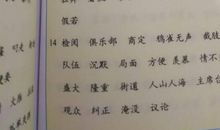 假若
14 检阅 俱乐部 商定 鸦雀无声 截肢
队伍 沉默 局面 方便 羡慕 情不
盛大 隆重 街道 人山人海 主席台
观众 纠正 淹没 议论